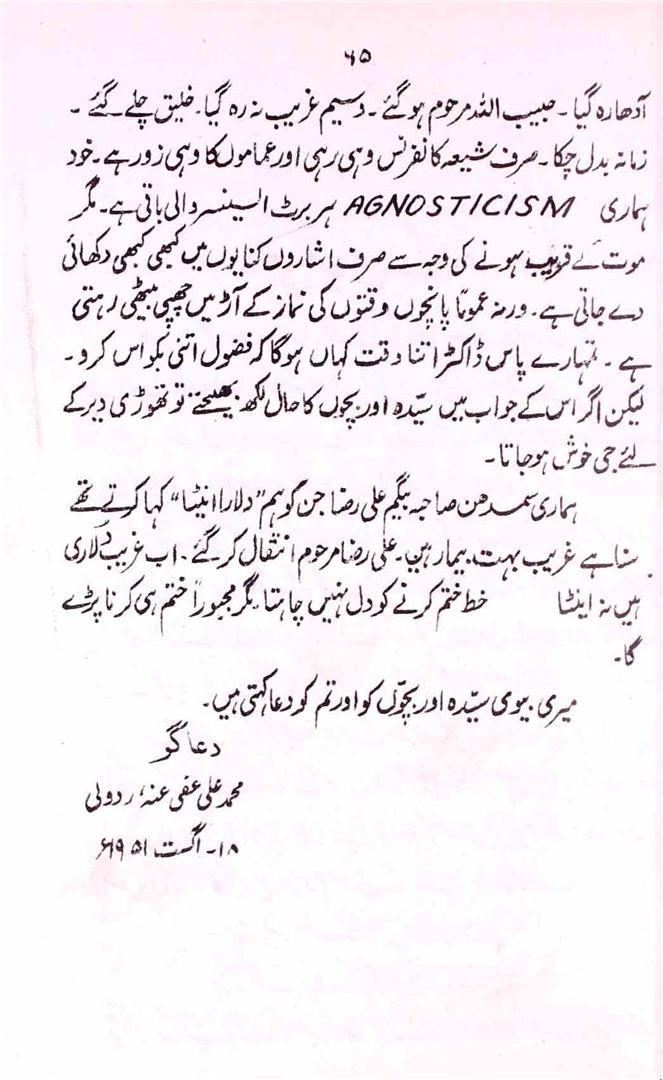 ۶۵
آدھا رہ گیا ۔ حبیب اللہ مرحوم ہو گئے ۔ وسیم غریب نہ رہ گیا ۔ خلیق چلے گئے ۔
زمانہ بدل چکا ۔ صرف شیعہ کانفرنس وہی رہی اور عماموں کا وہی زور ہے ۔ خود
ہماری AGNOSTICISM ہربرٹ اسپینسر والی باقی ہے ۔ مگر
موت کے قریب ہونے کی وجہ سے صرف اشاروں کنایوں میں کبھی کبھی دکھائی
دے جاتی ہے ۔ ورنہ عموماً پانچوں وقتوں کی نماز کے آڑ میں چھپی بیٹھی رہتی
ہے ۔ تمہارے پاس ڈاکٹر اتنا وقت کہاں ہوگا کہ فضول اتنی بکواس کرو ۔
لیکن اگر اس کے جواب میں سیّدہ اور بچوں کا حال لکھ بھیجتے تو تھوڑی دیر کے
لئے جی خوش ہو جاتا ۔
ہماری سمدھن صاحبہ بیگم علی رضا جن کو ہم "دلارا انیٹا" کہا کرتے تھے
سنا ہے غریب بہت بیمار ہیں ۔ علی رضا مرحوم انتقال کر گئے ۔ اب غریب دُلاری
ہیں نہ اینٹا خط ختم کرنے کو دل نہیں چاہتا ، مگر مجبوراً ختم ہی کرنا پڑے
گا ۔
میری بیوی سیّدہ اور بچّوں کو اور تم کو دعا کہتی ہیں ۔
دعا گو
محمد علی عفی عنہ، ردولی
۱۸ ۔ اگست ۱۹۵۱ء